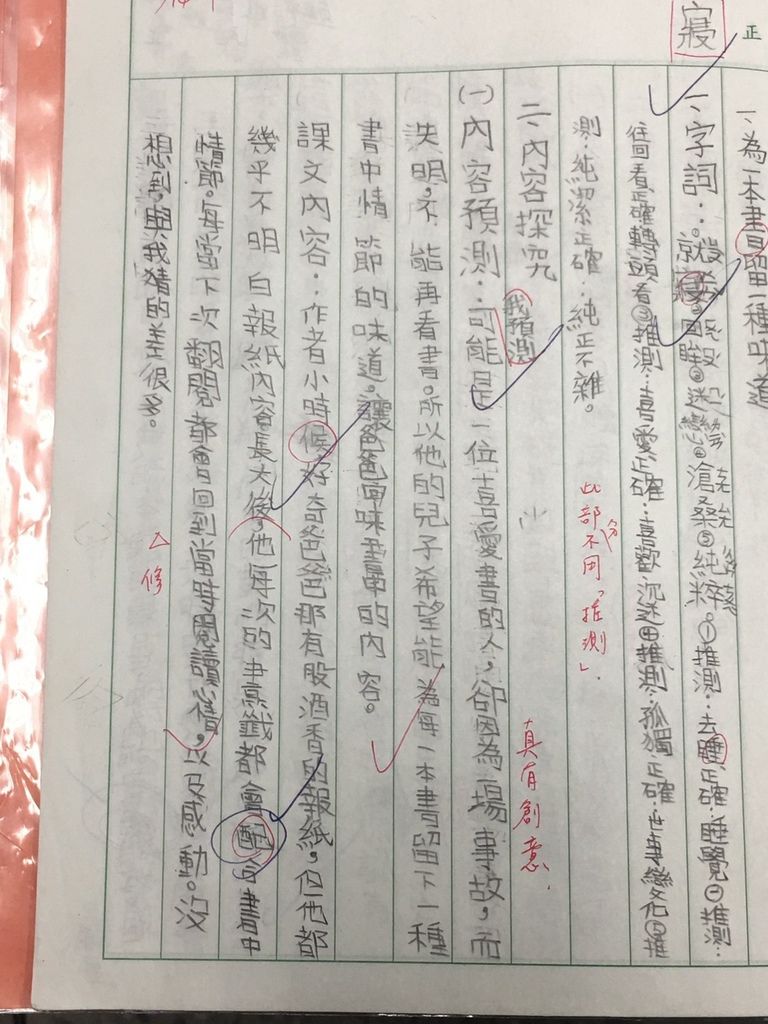 寢
正
一、為一本書留一種味道
一、字詞：①就寢②回眸③迷戀④滄桑⑤純粹。①推測：去睡正確：睡覺②推測：
往回看正確轉頭看③推測：喜愛正確：喜歡沉迷④推測：孤獨正確：世事變化⑤推
測：純潔正確：純正不雜。
此部分不用「推測」.
二、內容探究
我預測
真有創意.
(一)內容預測：可能是一位喜愛書的人，卻因為一場事故，而
失明，不能再看書。所以他的兒子希望能為每一本書留下一種
書中情節的味道。讓爸爸回味書中的內容。
課文內容：作者小時候好奇爸爸那有股酒香的報紙，但他都
幾乎不明白報紙內容長大後，他每次的書烹籤都會配合書中
情節。每當下次翻閱都會回到當時閱讀心情，以及感動。沒
想到，與我猜的差很多。
△修